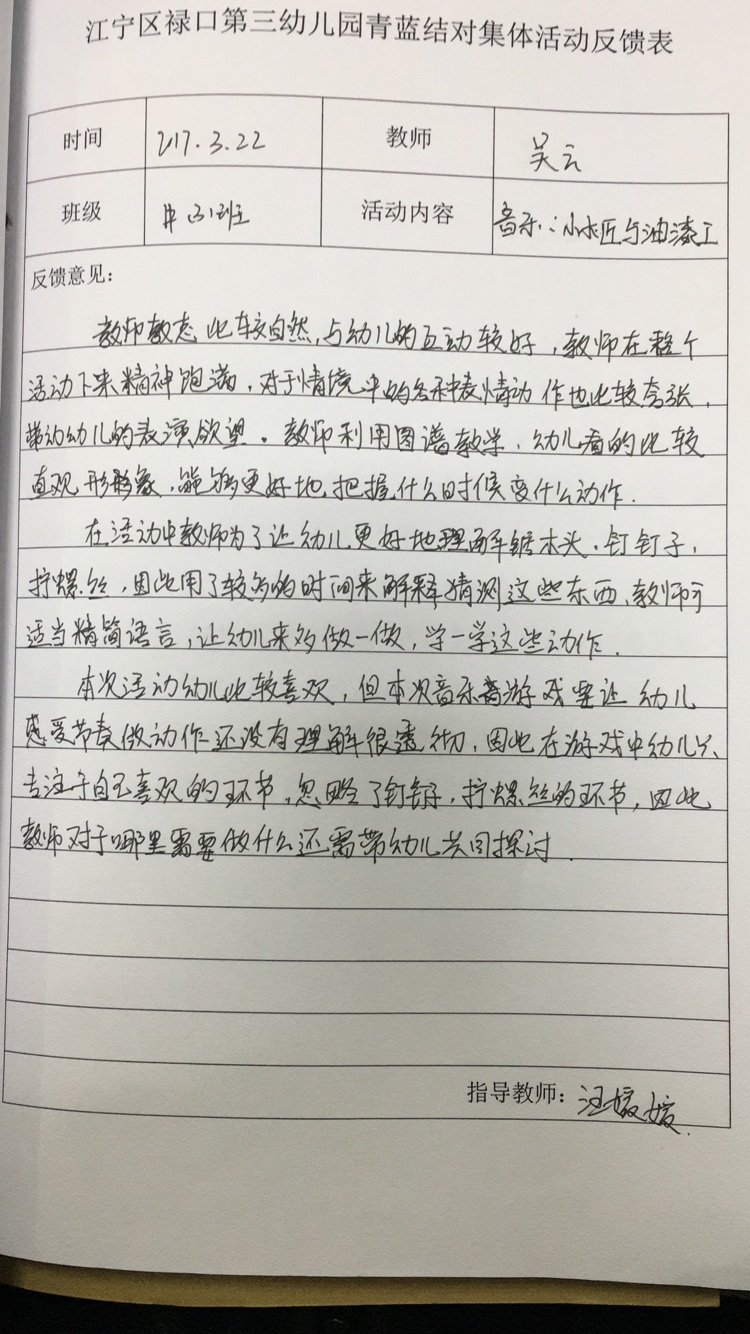 江宁区禄口第三幼儿园青蓝结对集体活动反馈表
时间 217.3.22 教师 吴云
班级 中(3)班 活动内容 音乐:小木匠与油漆工
反馈意见:
教师教态比较自然,与幼儿的互动较好,教师在整个
活动下来精神饱满,对于情境中的各种表情动作也比较夸张,
带动幼儿的表演欲望。教师利用图谱教学,幼儿看的比较
直观形象,能够更好地把握什么时候变什么动作.
在活动中教师为了让幼儿更好地理解锯木头、钉钉子,
拧螺丝,因此用了较多的时间来解释猜测这些东西,教师可
适当精简语言,让幼儿来多做一做,学一学这些动作.
本次活动幼儿比较喜欢,但本次音乐游戏要让幼儿
感受节奏做动作还没有理解很透彻,因此在游戏中幼儿只
专注于自己喜欢的环节,忽略了钉钉子,拧螺丝的环节,因此
教师对于哪里需要做什么还需带幼儿共同探讨.
指导教师:汪媛媛.